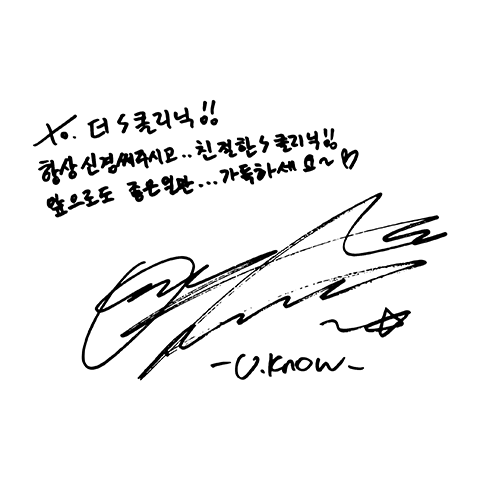 To. 더 S 클리닉!!
항상 신경써주시고.. 친절한 S 클리닉!!
앞으로도 좋은일만...가득하세요~♡
~☆
-U.Know-